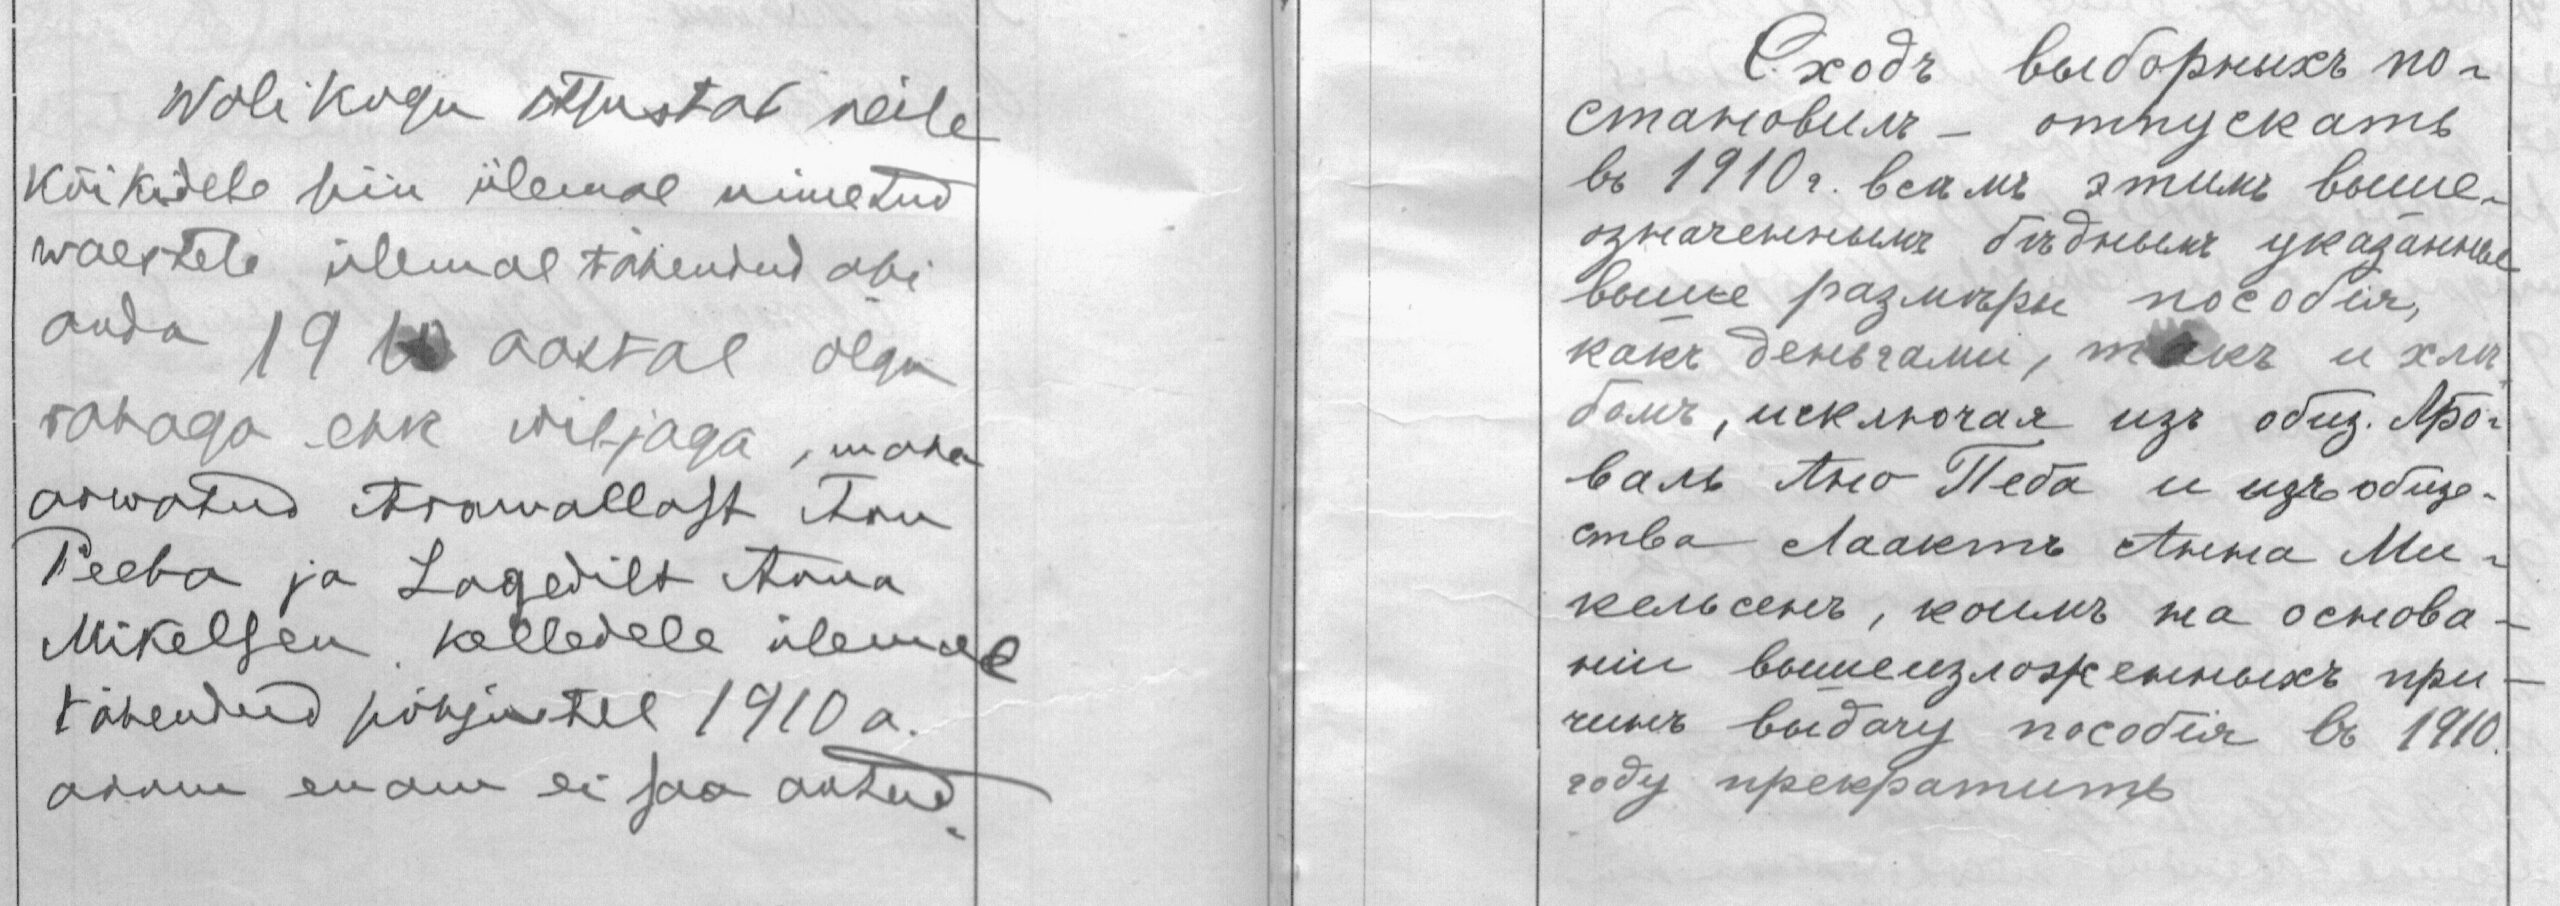 Wolikogu otsustab neile
kõikidele siin ülemal nimetud
waestele ülemal tähendud abi
anda 1910 aastal olgu
rahaga ehk wiljaga, maha
arwatud Arowallast Anu
Peeba ja Lagedilt Anna
Mikelsen kelledele ülemal
tähendud põhjustel 1910 a.
annu enam ei saa antud.
Сходъ выборныхъ по-
становилъ – отпускать
въ 1910 г. всѣмъ этимъ выше-
означеннымъ бѣднымъ указанные
выше размѣры пособія,
какъ деньгами, такъ и хлѣ-
бомъ, исключая изъ общ. Аро-
валь Ано Пеба и изъ обще-
ства Лаактъ Анна Ми-
кельсенъ, коимъ на основа-
ніи вышеизложенныхъ при-
чинъ выдачу пособія въ 1910.
году прекратить